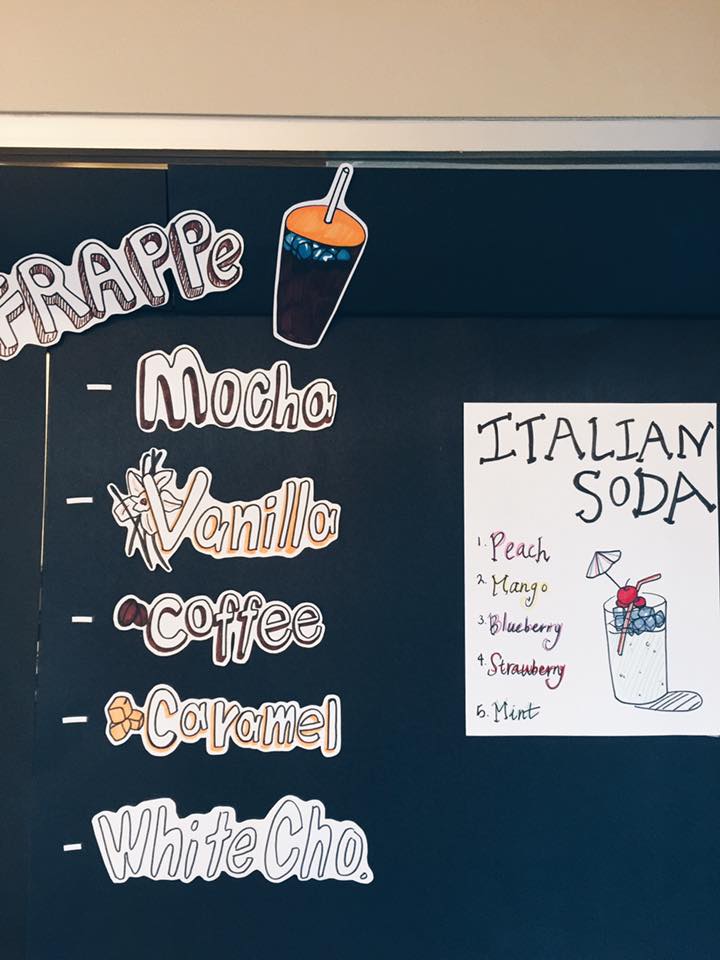 FRAPPe
- Mocha
- Vanilla
- Coffee
- Caramel
- White Cho.
ITALIAN
SODA
1. Peach
2. Mango
3. Blueberry
4. Strawberry
5. Mint